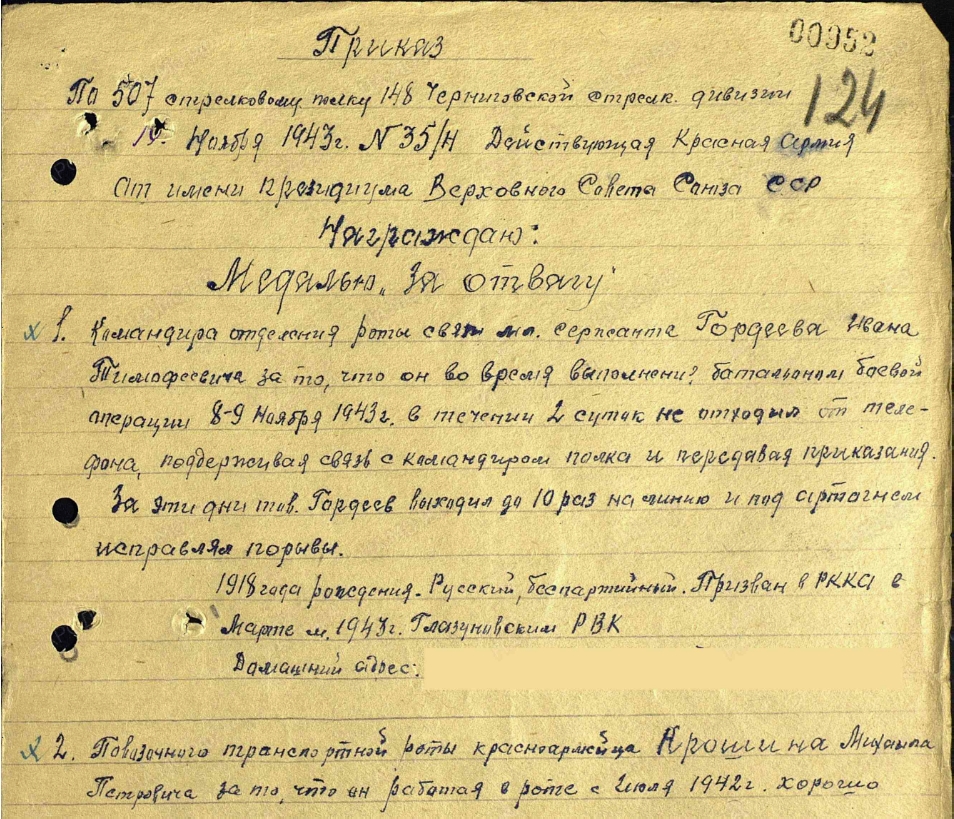 00952
124
Приказ
По 507 стрелковому полку 148 Черниговской стрелк. дивизии
Ноября 1943г. N 35/Н Действующая Красная Армия
От имени президиума Верховного Совета Союза ССР
Награждаю:
Медалью „За отвагу"
х 1. Командира отделения роты связи мл. сержанта Гордеева Ивана
Тимофеевича за то, что он во время выполнения батальоном боевой
операции 8-9 Ноября 1943г. в течении 2 суток не отходил от теле-
фона, поддерживая связь с командиром полка и передавая приказания.
За эти дни тов. Гордеев выходил до 10 раз на линию и под артогнем
исправлял порывы.
1918 года рождения. Русский, беспартийный. Призван в РККА в
Марте м. 1943г. Глазуновским РВК
Домашний адрес:
х 2. Повозочного транспортной роты красноармейца Крошина Михаила
Петровича за то, что он работая в роте с Июля 1942г. хорошо